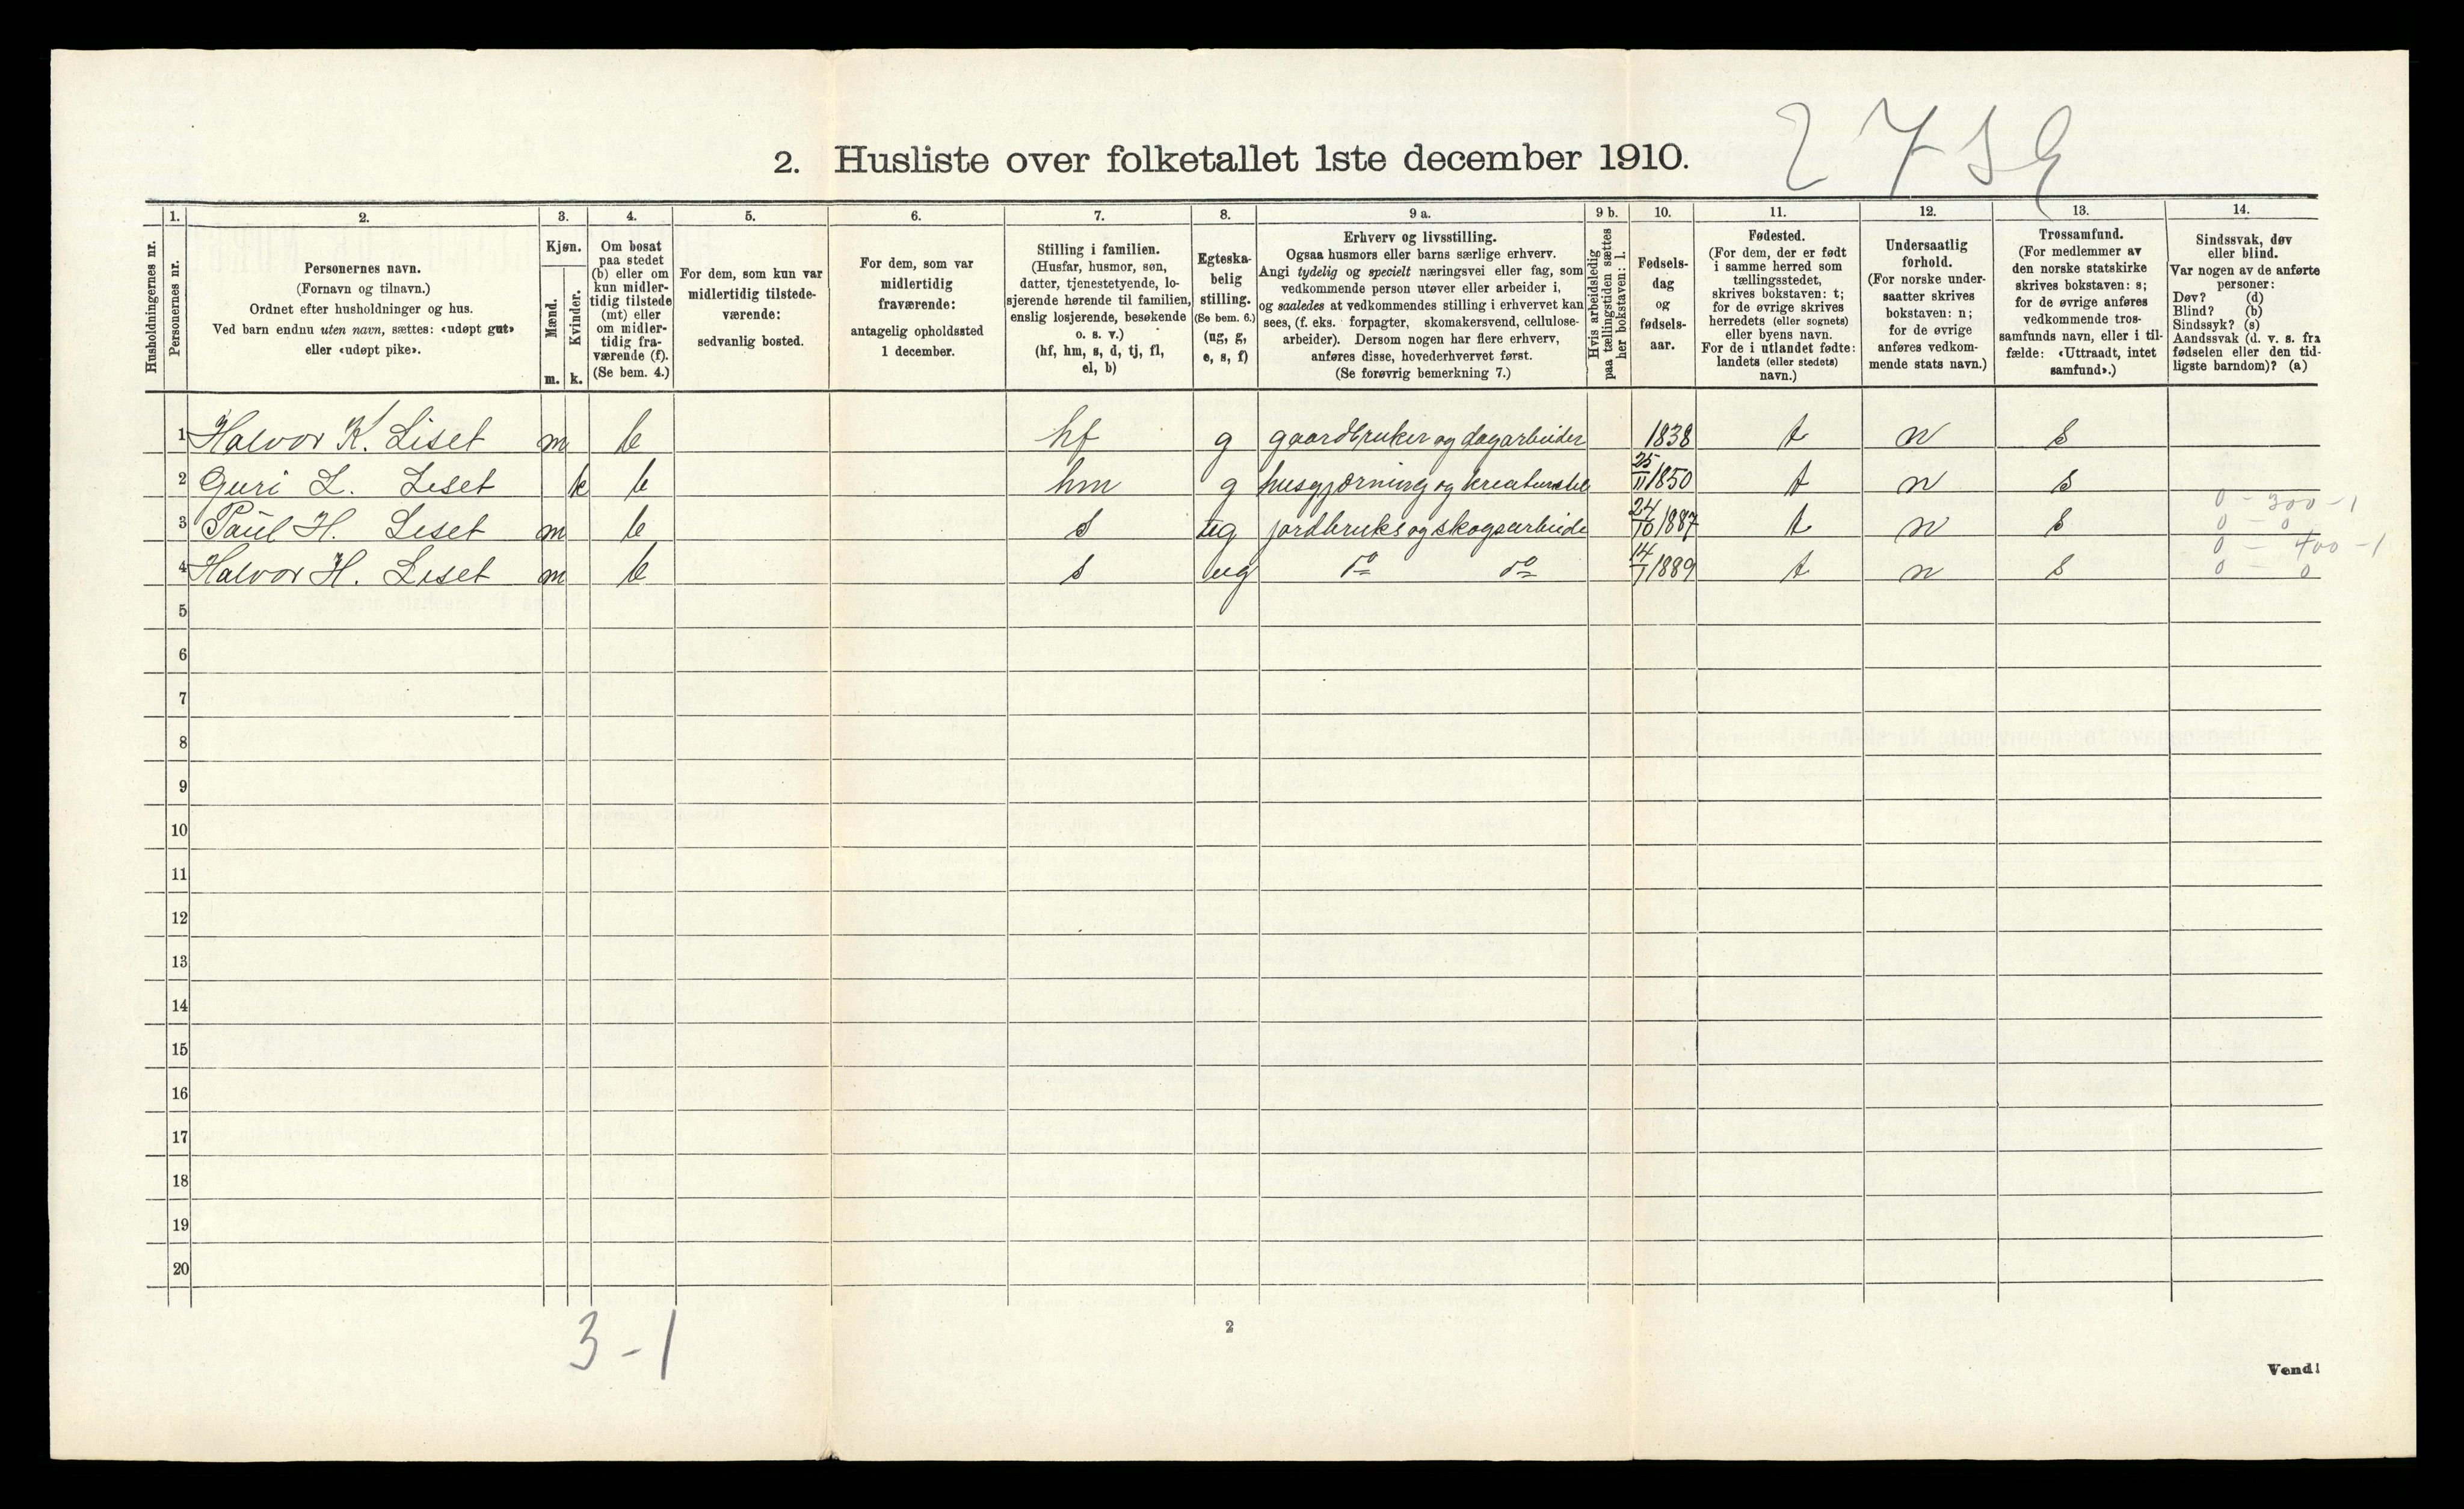 2. Husliste over folketallet 1ste december 1910.
1. 2. 3. 4. 5. 6. 7. 8. 9 a. 9 b. 10. 11. 12. 13. 14.
Husholdningernes nr.
Personernes nr.
Personernes navn.
(Fornavn og tilnavn.)
Ordnet efter husholdninger og hus.
Ved barn endnu uten navn, sættes: «udøpt gut»
eller «udøpt pike».
Kjøn.
Mænd.
Kvinder.
m. k.
Om bosat
paa stedet
(b) eller om
kun midler-
tidig tilstede
(mt) eller
om midler-
tidig fra-
værende (f).
(Se bem. 4.)
For dem, som kun var
midlertidig tilstede-
værende:
sedvanlig bosted.
For dem, som var
midlertidig
fraværende:
antagelig opholdssted
1 december.
Stilling i familien.
(Husfar, husmor, søn,
datter, tjenestetyende, lo-
sjerende hørende til familien,
enslig losjerende, besøkende
o. s. v.)
(hf, hm, s, d, tj, fl,
el, b)
Egteska-
belig
stilling.
(Se bem. 6.)
(ug, g,
e, s, f)
Erhverv og livsstilling.
Ogsaa husmors eller barns særlige erhverv.
Angi tydelig og specielt næringsvei eller fag, som
vedkommende person utøver eller arbeider i,
og saaledes at vedkommendes stilling i erhvervet kan
sees, (f. eks. forpagter, skomakersvend, cellulose-
arbeider). Dersom nogen har flere erhverv,
anføres disse, hovederhvervet først.
(Se forøvrig bemerkning 7.)
Hvis arbeidsledig
paa tællingstiden sættes
her bokstaven: l.
Fødsels-
dag
og
fødsels-
aar.
Fødested.
(For dem, der er født
i samme herred som
tællingsstedet,
skrives bokstaven: t;
for de øvrige skrives
herredets (eller sognets)
eller byens navn.
For de i utlandet fødte:
landets (eller stedets)
navn.)
Undersaatlig
forhold.
(For norske under-
saatter skrives
bokstaven: n;
for de øvrige
anføres vedkom-
mende stats navn.)
Trossamfund.
(For medlemmer av
den norske statskirke
skrives bokstaven: s;
for de øvrige anføres
vedkommende tros-
samfunds navn, eller i til-
fælde: «Uttraadt, intet
samfund».)
Sindssvak, døv
eller blind.
Var nogen av de anførte
personer:
Døv? (d)
Blind? (b)
Sindssyk? (s)
Aandssvak (d. v. s. fra
fødselen eller den tid-
ligste barndom)? (a)
1 Halvor K. Liset m b hf g gaardbruker og dagarbeider 1838 t n s
2 Guri L. Liset k b hm g husgjerning og kreaturstel 25/11 1850 t n s
0 - 300 - 1
3 Paul H. Liset m b s ug jordbruks og skogsarbeide 24/10 1887 t n s 0 - 0
0 - 400 - 1
4 Halvor H. Liset m b s ug do do 14/1 1889 t n s 0 - 0
5
6
7
8
9
10
11
12
13
14
15
16
17
18
19
20
3 - 1
2
Vend!